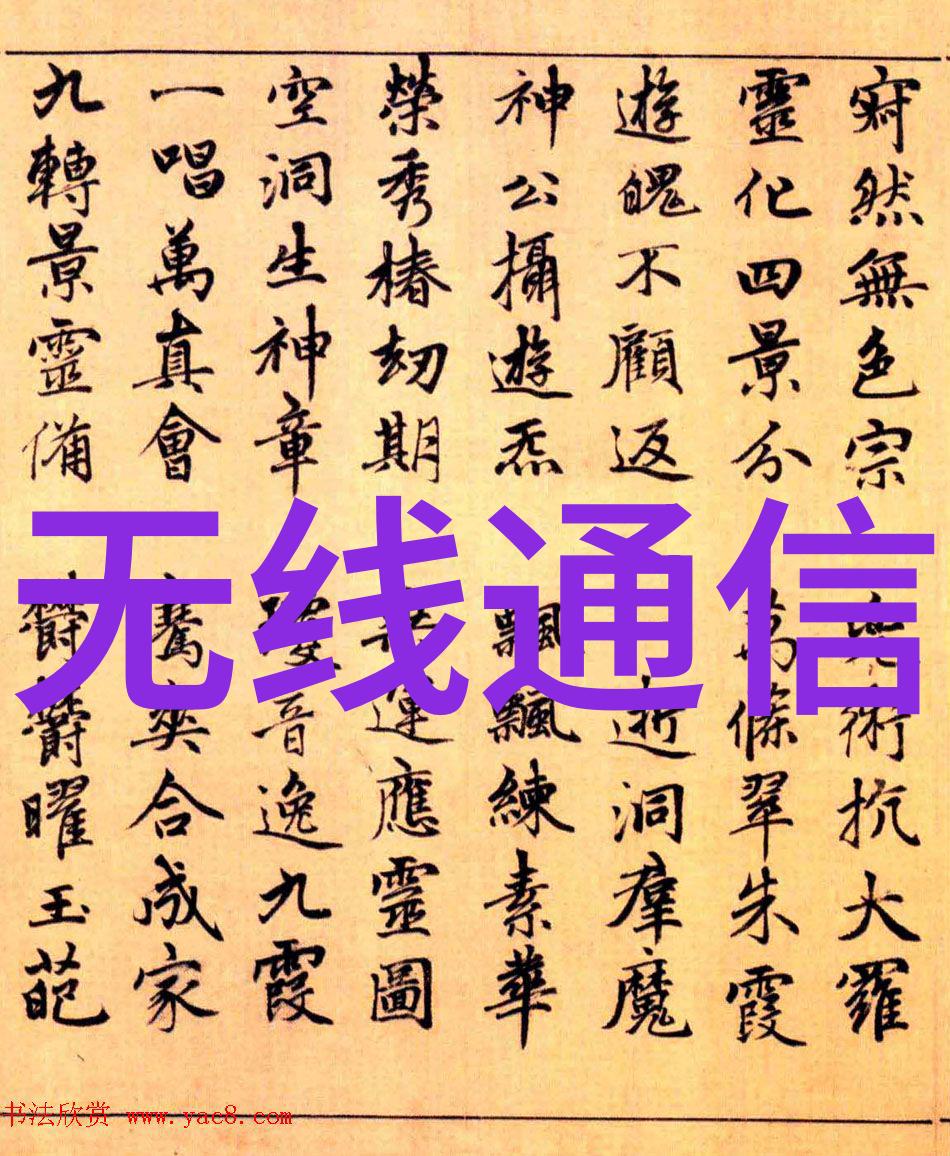 寂然無色宗 術抗大羅
靈化四景分 萬條翠朱霞
遊魄不顧返 逝洞群魔
神公攝遊炁 飄飄練素華
榮秀椿劫期 運應靈圖
空洞生神章 音逸九霞
一唱萬真會 騫爽合成家
九轉景靈備 鬱鬱曜玉葩
无线通信
书法欣赏 www.yac8.com